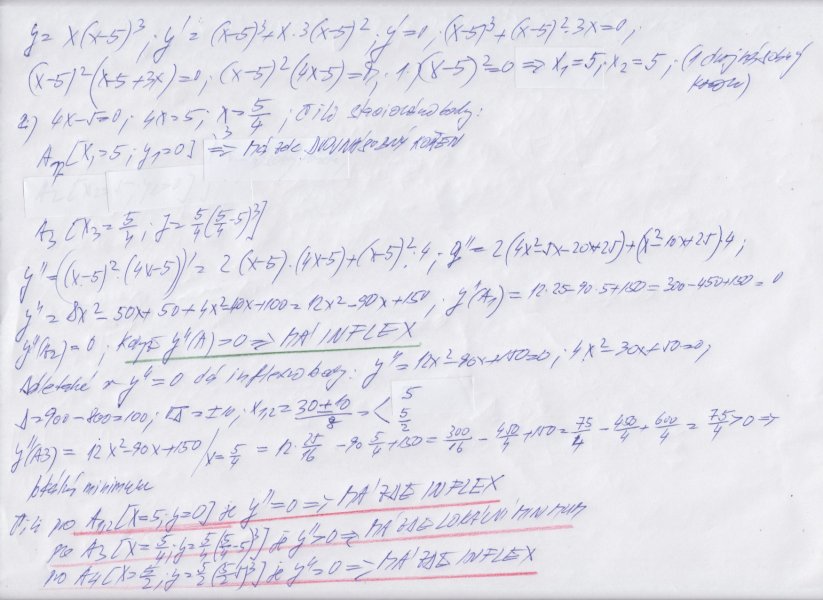 y = x(x-5)³ ; y' = (x-5)³ + x·3(x-5)² ; y' = 0 ; (x-5)³ + (x-5)²·3x = 0 ;
(x-5)²(x-5+3x) = 0 ; (x-5)²(4x-5) = 0 ; 1.) (x-5)² = 0 => x₁ = 5 ; x₂ = 5 ; (1 dvojnásobný
kořen)
2) 4x-5=0 ; 4x=5 ; x = 5/4 ; Čili stacionární body:
[x₁=5 ; y₁=0] => MÁ zde DVOJNÁSOBNÝ KOŘEN
A₃ [x₃ = 5/4 ; y = 5/4(5/4-5)³]
y'' = ((x-5)²·(4x-5))' = 2(x-5)·(4x-5)+(x-5)²·4 ; y'' = 2(4x²-5x-20x+25)+(x²-10x+25)·4 ;
y'' = 8x²-50x+50+4x²-40x+100 = 12x²-90x+150 ; y''(A₁) = 12·25-90·5+150 = 300-450+150 = 0
y''(A₂) = 0 ; Když y''(A) = 0 => MÁ INFLEX
y'' = 0 dá inflexní body: y'' = 12x²-90x+150=0 ; 4x²-30x+50=0 ;
Δ=900-800=100 ; √Δ = ±10 ; x₁,₂ = (30±10)/8 = < 5
5/2
y''(A3) = 12x²-90x+150 / x=5/4 = 12·25/16 - 90·5/4+150 = 300/16 - 450/4 + 150 = 75/4 - 450/4 + 600/4 = 75/4 > 0 =>
lokální minimum
Čili pro A₁,₂ [x=5 ; y=0] je y''=0 => MÁ ZDE INFLEX
pro A₃ [x=5/4 ; y=5/4(5/4-5)³] je y''>0 => MÁ ZDE LOKÁLNÍ MINIMUM
pro A₄ [x=5/2 ; y=5/2(5/2-5)³] je y''=0 => MÁ ZDE INFLEX